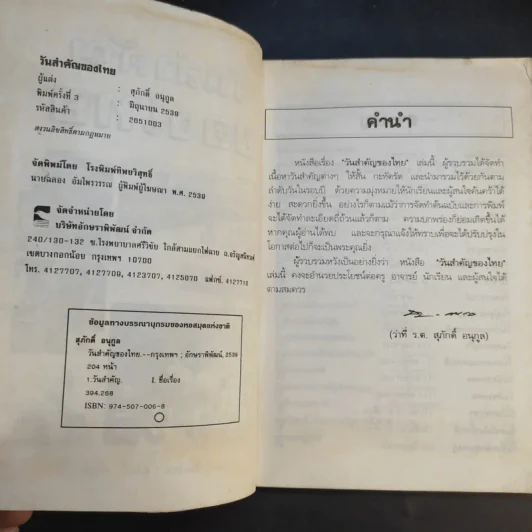 วันสำคัญของไทย
ผู้แต่ง : สุภักดิ์ อนุกูล
พิมพ์ครั้งที่ 3 : มิถุนายน 2539
รหัสสินค้า : 2051003
สงวนลิขสิทธิ์ตามกฎหมาย
จัดพิมพ์โดย โรงพิมพ์ทิพยวิสุทธิ์
นายฉลอง อัมไพรวรรณ ผู้พิมพ์ผู้โฆษณา พ.ศ. 2539
จัดจำหน่ายโดย
บริษัทอักษราพิพัฒน์ จำกัด
240/130-132 ซ.โรงพยาบาลศรีวิชัย ใกล้สามแยกไฟฉาย ถ.จรัญสนิทวงศ์
เขตบางกอกน้อย กรุงเทพฯ 10700
โทร. 4127707, 4127700, 4123707, 4125070 แฟกซ์. 4127710
ข้อมูลทางบรรณานุกรมของหอสมุดแห่งชาติ
สุภักดิ์ อนุกูล
วันสำคัญของไทย.--กรุงเทพฯ : อักษราพิพัฒน์, 2539
204 หน้า
1.วันสำคัญ. I. ชื่อเรื่อง
394.268
ISBN: 974-507-006-8
คำนำ
หนังสือเรื่อง "วันสำคัญของไทย" เล่มนี้ ผู้รวบรวมได้จัดทำ
เนื้อหาวันสำคัญต่างๆ ให้สั้น กะทัดรัด และนำมารวมไว้ด้วยกันตาม
ลำดับวันในรอบปี ด้วยความมุ่งหมายให้นักเรียนและผู้สนใจค้นคว้าได้
ง่าย สะดวกยิ่งขึ้น อย่างไรก็ตามแม้ว่าการจัดทำต้นฉบับและการพิมพ์
จะได้จัดทำละเอียดถี่ถ้วนแล้วก็ตาม ความบกพร่องก็ย่อมเกิดขึ้นได้
หากคุณผู้อ่านได้พบ และจะกรุณาแจ้งให้ทราบเพื่อจะได้ปรับปรุงใน
โอกาสต่อไปก็จะเป็นพระคุณยิ่ง
ผู้รวบรวมหวังเป็นอย่างยิ่งว่า หนังสือ "วันสำคัญของไทย"
เล่มนี้ คงจะอำนวยประโยชน์ต่อครู อาจารย์ นักเรียน และผู้สนใจได้
ตามสมควร
(ว่าที่ ร.ต. สุภักดิ์ อนุกูล)